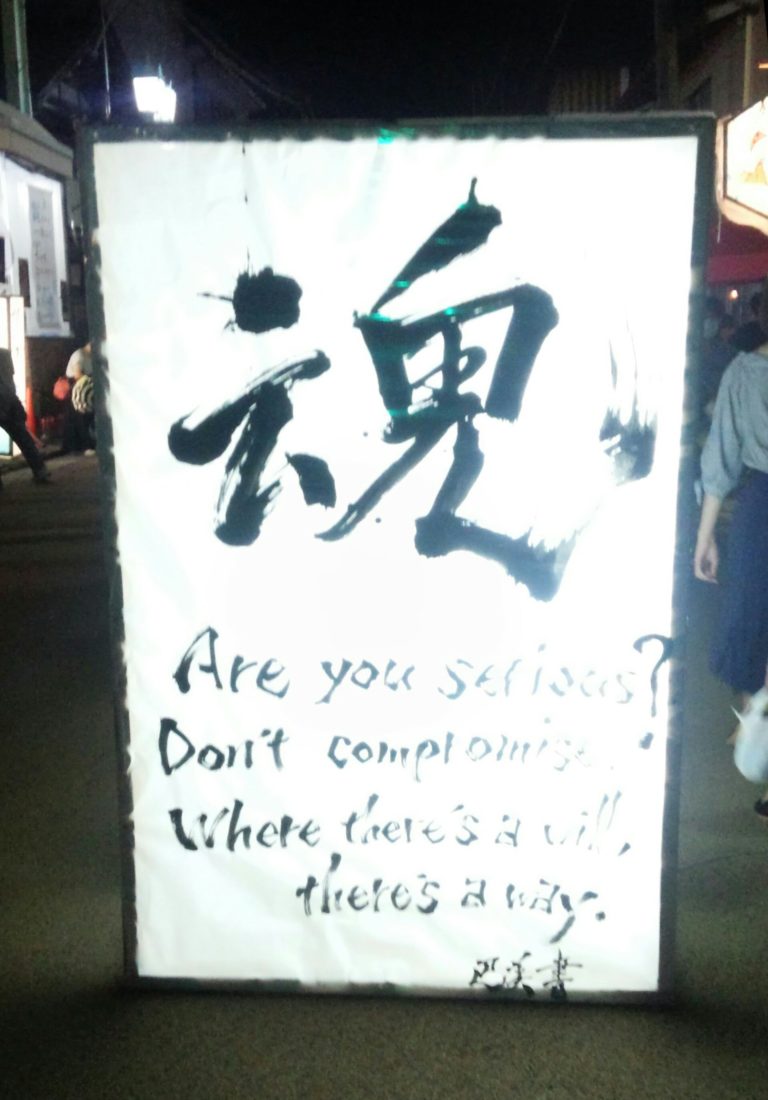 魂
Are you serious?
Don't compromise.
Where there's a will,
there's a way.
書